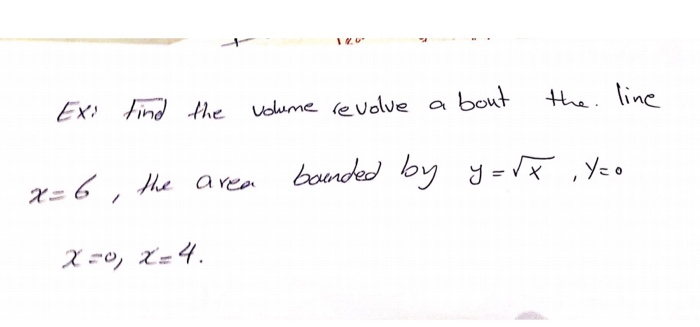 Ex: find the volume revolve about the line
x=6, the area bounded by y=√x, y=0
x=0, x=4.